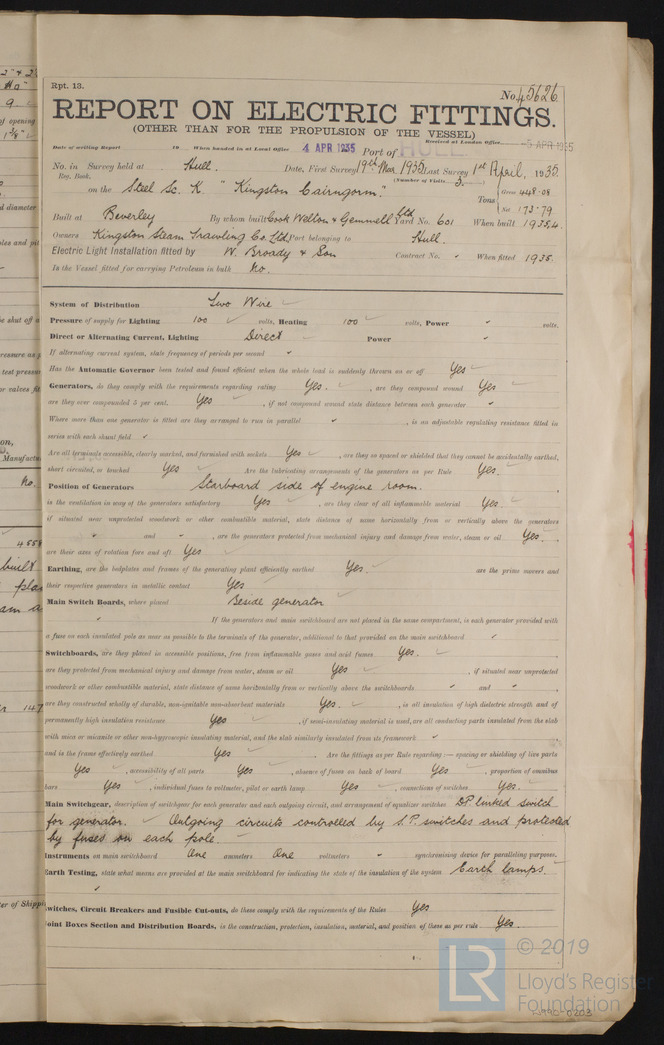 Rpt. 13.
No. 45626
REPORT ON ELECTRIC FITTINGS.
(OTHER THAN FOR THE PROPULSION OF THE VESSEL)
Date of writing Report 19 When handed in at Local Office 4 APR 1935 Port of HULL Received at London Office -5 APR 1935
No. in Survey held at Hull. Date, First Survey 19th Mar. 1935 Last Survey 1st April, 1935.
Reg. Book. (Number of Visits 3.
on the Steel Sc. K. "Kingston Cairngorm." Tons { Gross 448.08
Net 173.79
Built at Beverley By whom built Cook Welton & Gemmell Ltd Yard No. 601 When built 1935,4.
Owners Kingston Steam Trawling Co. Ltd. Port belonging to Hull.
Electric Light Installation fitted by W. Broady & Son Contract No. " When fitted 1935.
Is the Vessel fitted for carrying Petroleum in bulk No.
System of Distribution Two Wire
Pressure of supply for Lighting 100 volts, Heating 100 volts, Power " volts.
Direct or Alternating Current, Lighting Direct Power "
If alternating current system, state frequency of periods per second "
Has the Automatic Governor been tested and found efficient when the whole load is suddenly thrown on or off Yes
Generators, do they comply with the requirements regarding rating Yes. , are they compound wound Yes
are they over compounded 5 per cent. Yes , if not compound wound state distance between each generator "
Where more than one generator is fitted are they arranged to run in parallel " , is an adjustable regulating resistance fitted in
series with each shunt field "
Are all terminals accessible, clearly marked, and furnished with sockets Yes , are they so spaced or shielded that they cannot be accidentally earthed,
short circuited, or touched Yes Are the lubricating arrangements of the generators as per Rule Yes.
Position of Generators Starboard side of engine room.
is the ventilation in way of the generators satisfactory Yes , are they clear of all inflammable material Yes.
if situated near unprotected woodwork or other combustible material, state distance of same horizontally from or vertically above the generators
" and " , are the generators protected from mechanical injury and damage from water, steam or oil Yes.
are their axes of rotation fore and aft Yes
Earthing, are the bedplates and frames of the generating plant efficiently earthed Yes. are the prime movers and
their respective generators in metallic contact Yes
Main Switch Boards, where placed Beside generator
" If the generators and main switchboard are not placed in the same compartment, is each generator provided with
a fuse on each insulated pole as near as possible to the terminals of the generator, additional to that provided on the main switchboard "
Switchboards, are they placed in accessible positions, free from inflammable gases and acid fumes Yes.
are they protected from mechanical injury and damage from water, steam or oil Yes , if situated near unprotected
woodwork or other combustible material, state distance of same horizontally from or vertically above the switchboards " and " ,
are they constructed wholly of durable, non-ignitable non-absorbent materials Yes. , is all insulation of high dielectric strength and of
permanently high insulation resistance Yes , if semi-insulating material is used, are all conducting parts insulated from the slab
with mica or micanite or other non-hygroscopic insulating material, and the slab similarly insulated from its framework "
and is the frame effectively earthed Yes . Are the fittings as per Rule regarding:— spacing or shielding of live parts
Yes , accessibility of all parts Yes , absence of fuses on back of board Yes , proportion of omnibus
bars Yes , individual fuses to voltmeter, pilot or earth lamp Yes , connections of switches Yes.
Main Switchgear, description of switchgear for each generator and each outgoing circuit, and arrangement of equalizer switches D.P. linked switch
for generator. Outgoing circuits controlled by S.P. switches and protected
by fuses on each pole.
Instruments on main switchboard One ammeters One voltmeters " synchronising device for paralleling purposes.
Earth Testing, state what means are provided at the main switchboard for indicating the state of the insulation of the system Earth lamps.
"
Switches, Circuit Breakers and Fusible Cut-outs, do these comply with the requirements of the Rules Yes
Joint Boxes Section and Distribution Boards, is the construction, protection, insulation, material, and position of these as per rule Yes.
LR
© 2019
Lloyd's Register
Foundation